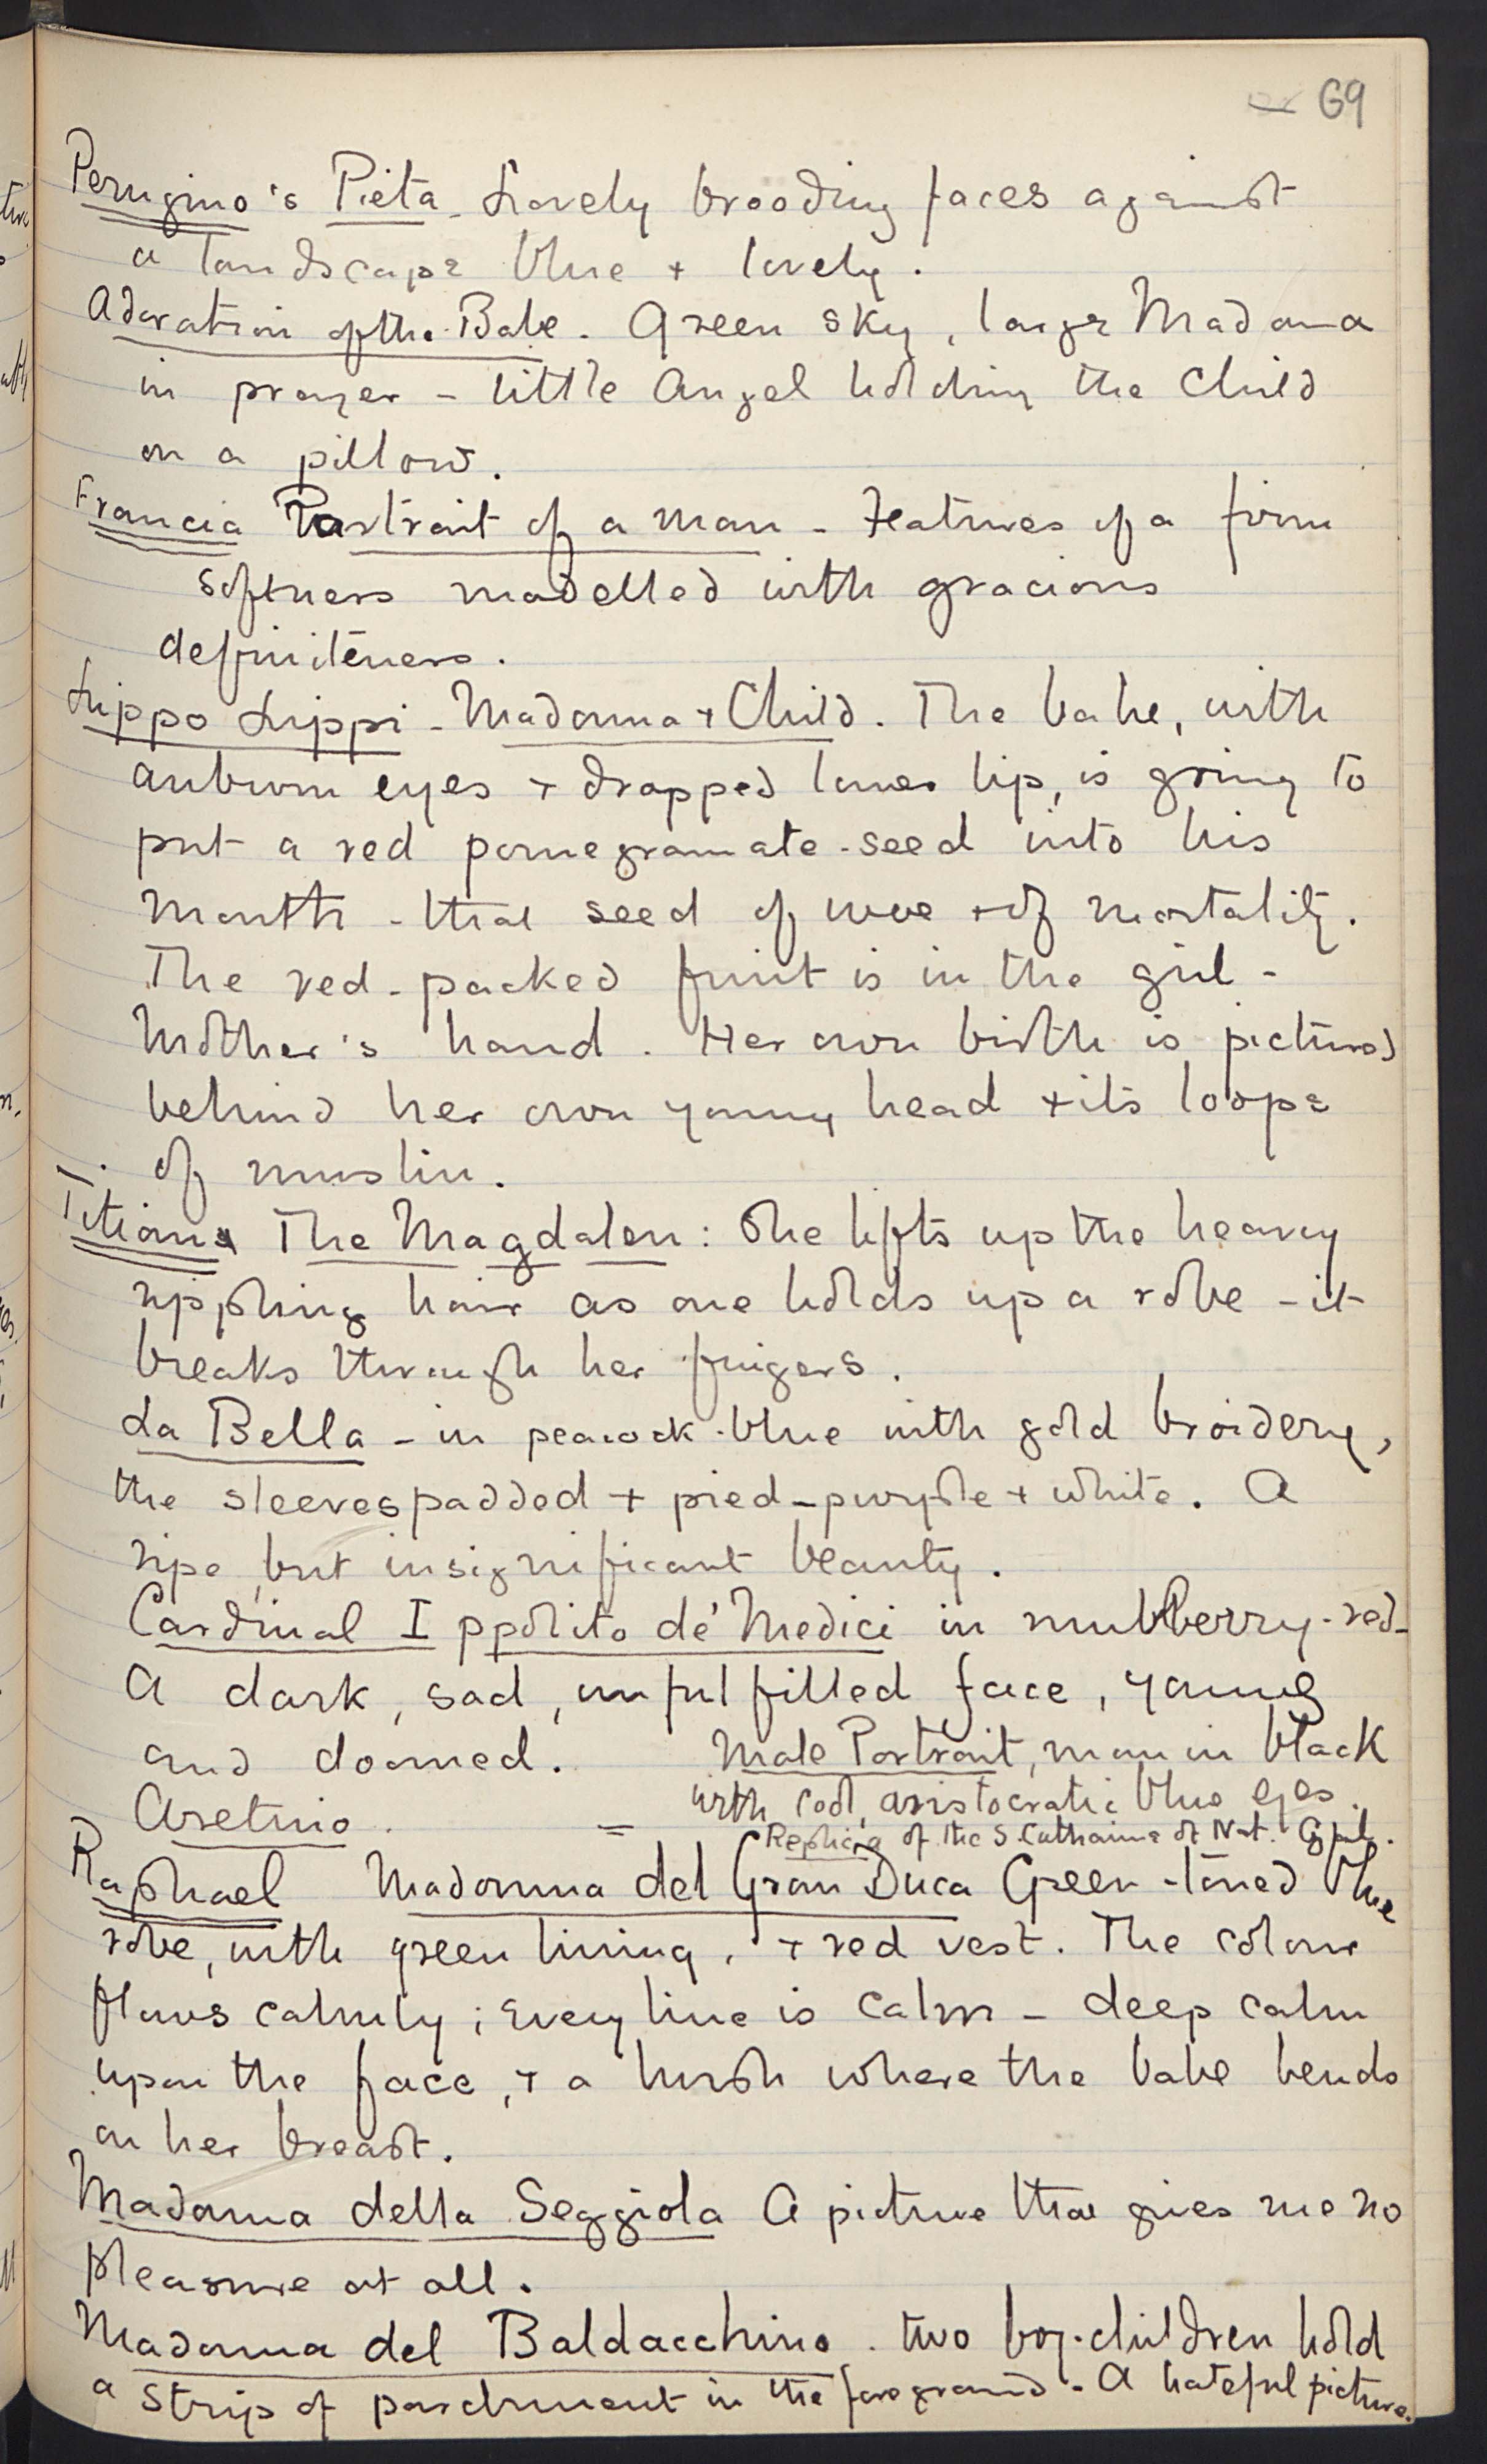 69
Perugino's Pieta - Lovely brooding faces against
a landscape blue + lovely.
Adoration of the Babe. Green sky, large Madonna
in prayer - little Angel holding the Child
on a pillow.
Francia Portrait of a man - Features of a firm
softness modelled with gracious
definiteness.
Lippo Lippi - Madonna + Child. The babe, with
auburn eyes + dropped lower lip, is going to
put a red pomegranate-seed into his
mouth - that seed of woe + of mortality.
The red-packed fruit is in the girl-
mother's hand. Her own birth is pictured
behind her own young head + its loops
of muslin.
Titian The Magdalen: She lifts up the heavy
rippling hair as one holds up a robe - it
breaks through her fingers.
La Bella - in peacock-blue with gold broidery,
the sleeves padded + pied - purple + white. A
ripe, but insignificant beauty.
Cardinal Ippolito de' Medici in mulberry-red -
A dark, sad, unfulfilled face, young
and doomed.
Male Portrait, man in black
with cool, aristocratic blue eyes.
Aretino. =
Replica of the S. Catharine at Nat.
Raphael Madonna del Gran Duca Green-toned blue
robe, with green lining, + red vest. The colour
flows calmly; Every line is calm - deep calm
upon the face, + a hush where the babe bends
on her breast.
Madonna della Seggiola A picture that gives me no
pleasure at all.
Madonna del Baldacchino. two boy-children hold
a strip of parchment in the foreground - A hateful picture.